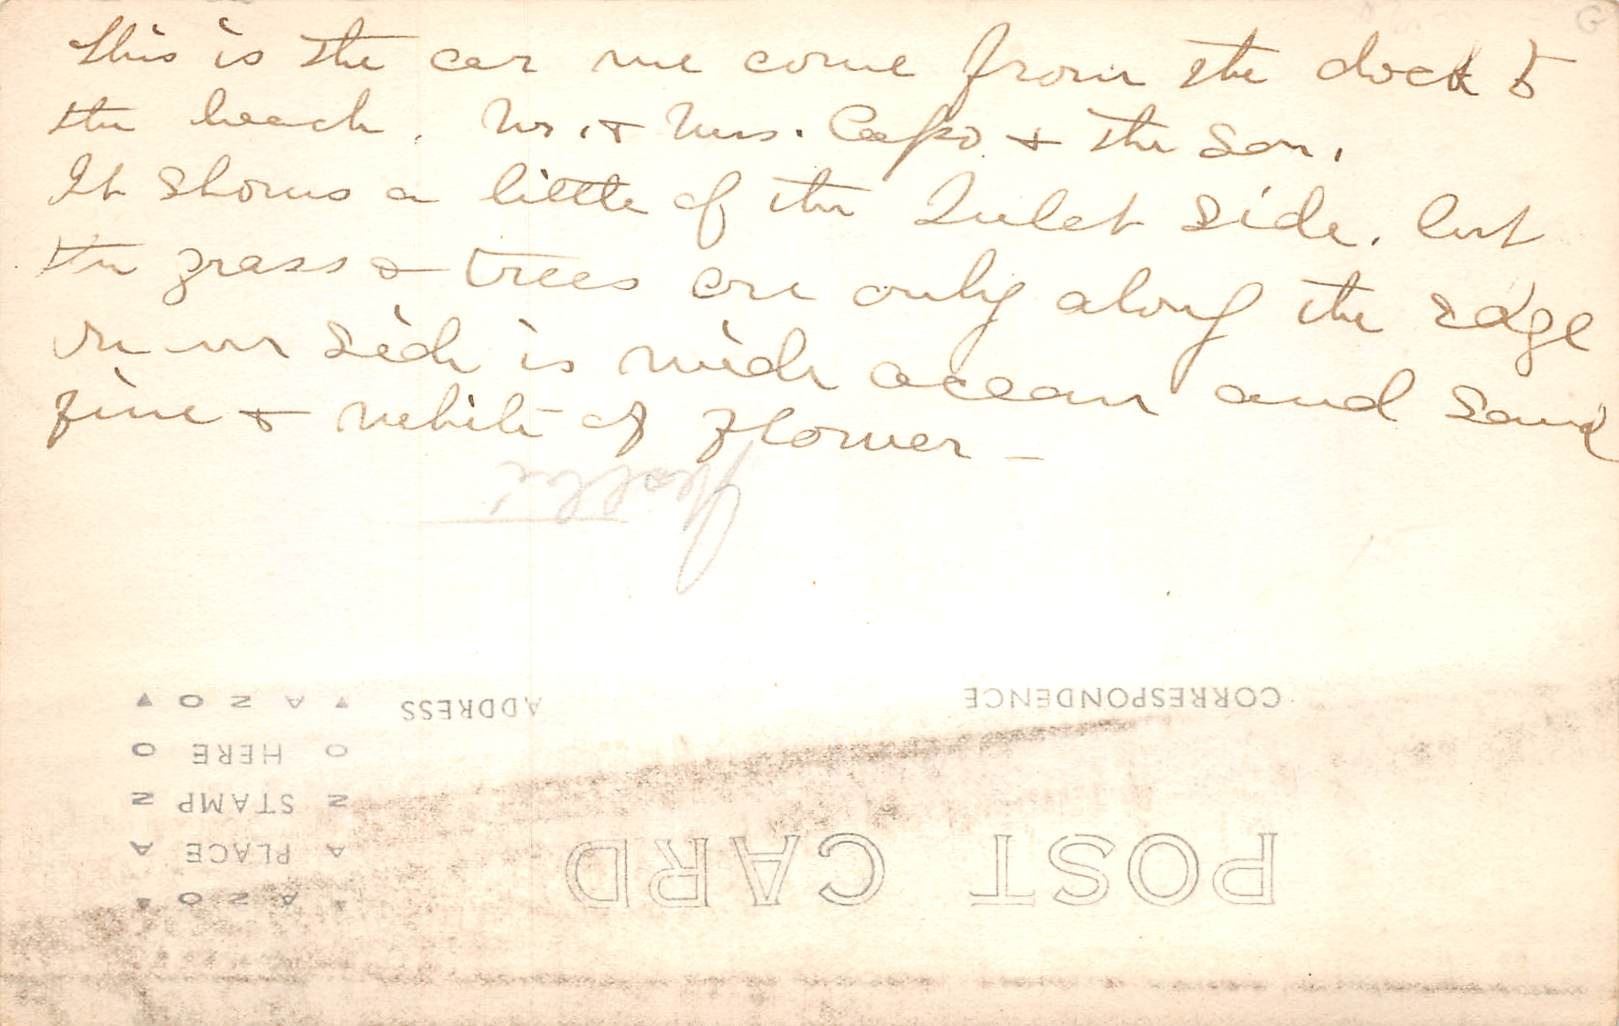 This is the car we come from the dock to
the beach. Mr. & Mrs. Capo & the son.
It shows a little of the Inlet side. but
the grass & trees are only along the edge
on our side is wide ocean and sand
fine & white as flower -
CORRESPONDENCE
ADDRESS
POST CARD
AZO
PLACE
STAMP
HERE
AZO